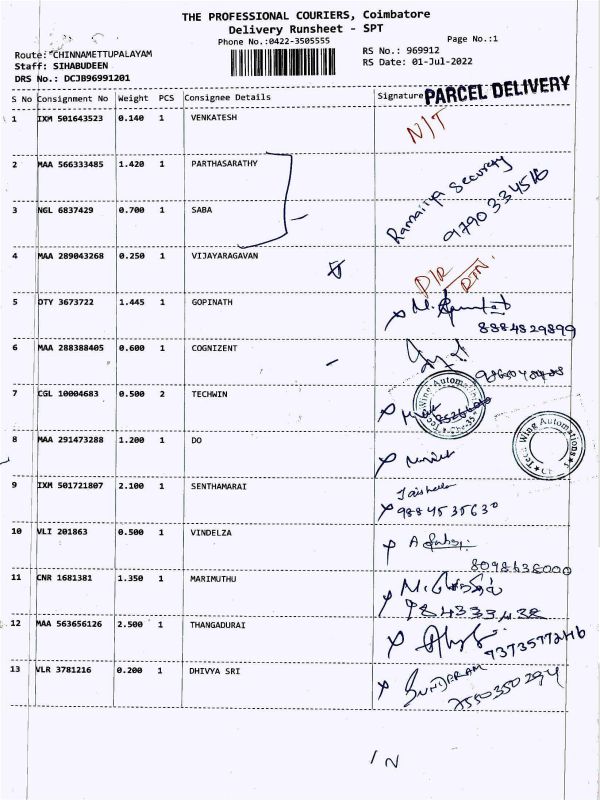 THE PROFESSIONAL COURIERS, Coimbatore
Delivery Runsheet - SPT
Phone No.:0422-3505555
Page No.:1
Route: CHINNAMETTUPALAYAM
RS No.: 969912
Staff: SIHABUDEEN
RS Date: 01-Jul-2022
DRS No.: DCJB96991201
S No Consignment No Weight PCS Consignee Details Signature PARCEL DELIVERY
1 IXM 501643523 0.140 1 VENKATESH N/T
2 MAA 566333485 1.420 1 PARTHASARATHY
Ramaiya Security
9790334516
3 NGL 6837429 0.700 1 SABA
4 MAA 289043268 0.250 1 VIJAYARAGAVAN D/R RTN.
5 DTY 3673722 1.445 1 GOPINATH
8884829899
6 MAA 288388405 0.600 1 COGNIZENT
7 CGL 10004683 0.500 2 TECHWIN
Tech Wing Automations
8 MAA 291473288 1.200 1 DO
Tech Wing Automations
9 IXM 501721807 2.100 1 SENTHAMARAI
9884535630
10 VLI 201863 0.500 1 VINDELZA
8098638000
11 CNR 1681381 1.350 1 MARIMUTHU
9843334238
12 MAA 563656126 2.500 1 THANGADURAI
7373577246
13 VLR 3781216 0.200 1 DHIVYA SRI SUNDARAM
7550350294
N